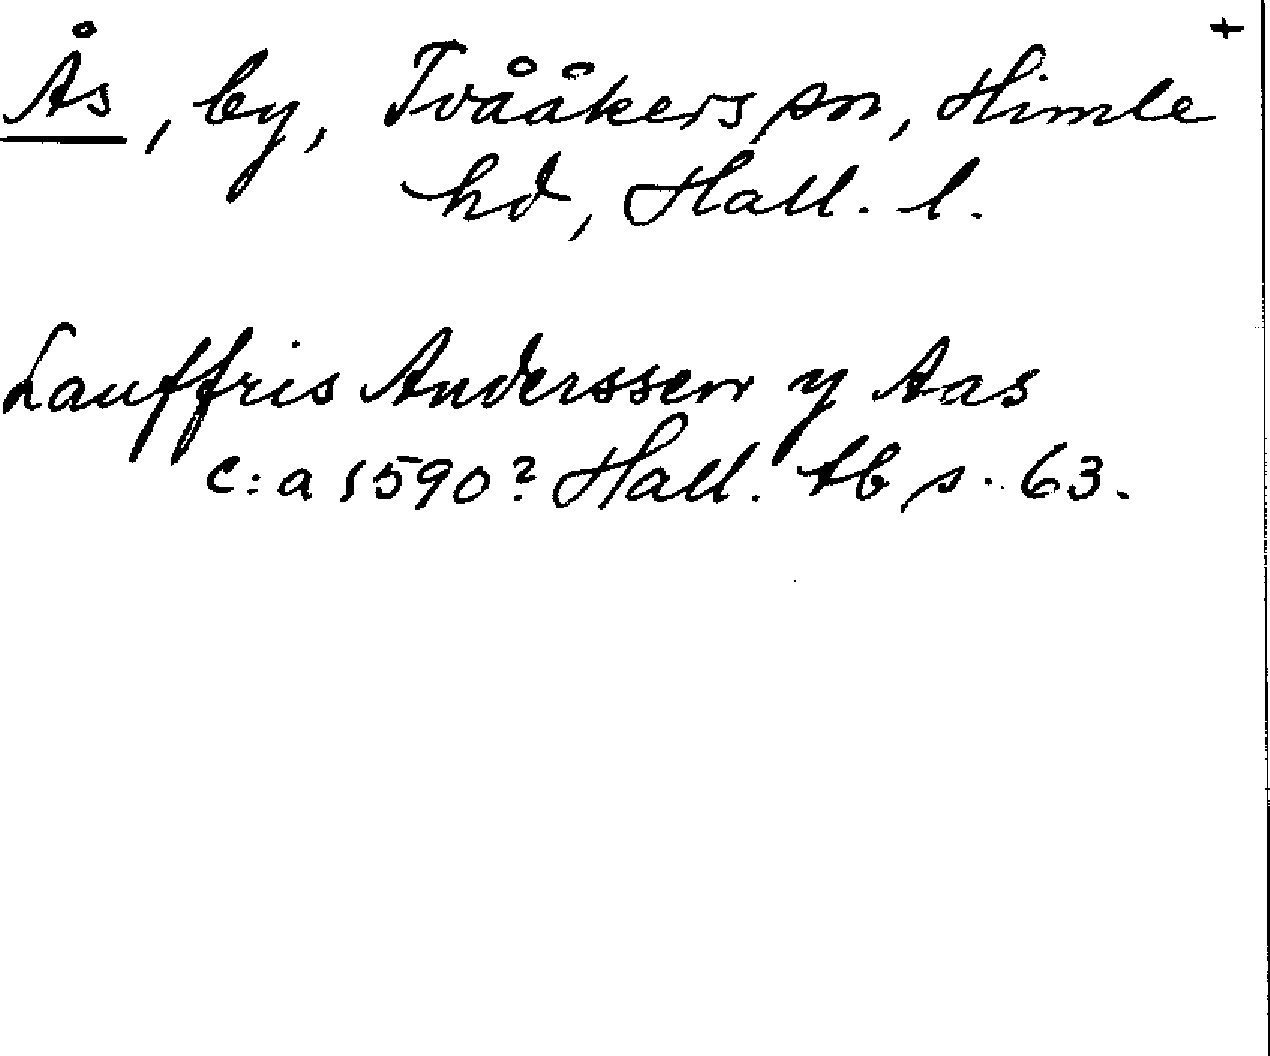 +
Ås, by, Tvååkers sn, Himle
hd, Hall. l.
Lauffris Anderssen y Aas
c:a 1590? Hall. tb s. 63.